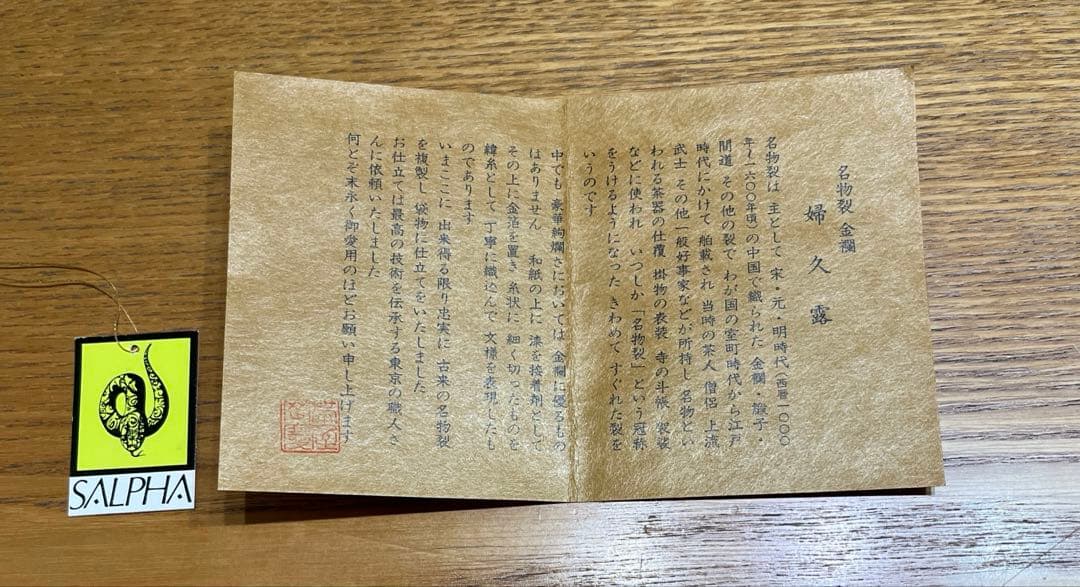 名物裂 金襴
婦久露
名物裂は 主として 宋・元・明時代(西暦一〇〇〇
年〜一六〇〇年頃)の中国で織られた 金襴・緞子・
間道 その他の裂で わが国の室町時代から江戸
時代にかけて 舶載され 当時の茶人 僧侶 上流
武士 その他 一般好事家などが所持し 名物とい
われる茶器の仕覆 掛物の表装 寺の斗帳 袈裟
などに使われ いつしか「名物裂」という冠称
をうけるようになった きわめて すぐれた裂を
いうのです
中でも 豪華絢爛さにおいては 金襴に優るもの
はありません 和紙の上に 漆を接着剤として
その上に金箔を置き 糸状に 細く切ったものを
緯糸として 丁寧に織込んで 文様を表現したも
のであります
いまここに 出来得る限り忠実に 古来の名物裂
を複製し 袋物に仕立てをいたしました
お仕立ては最高の技術を伝承する東京の職人さ
んに依頼いたしました
何とぞ末永く御愛用のほどお願い申し上げます
SALPHA